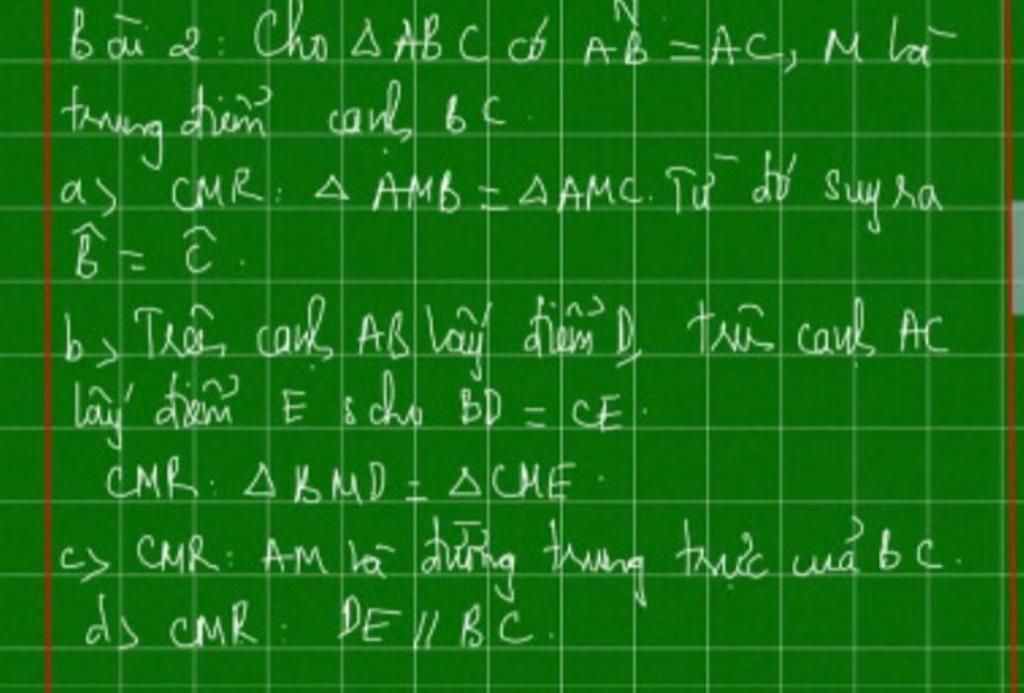 Bài 2: Cho △ABC có AB = AC, M là
trung điểm cạnh BC.
a) CMR: △AMB = △AMC. Từ đó suy ra
B̂ = Ĉ.
b) Trên cạnh AB lấy điểm D, trên cạnh AC
lấy điểm E scho BD = CE.
CMR: △BMD = △CME.
c) CMR: AM là đường trung trực của BC.
d) CMR: DE // BC.